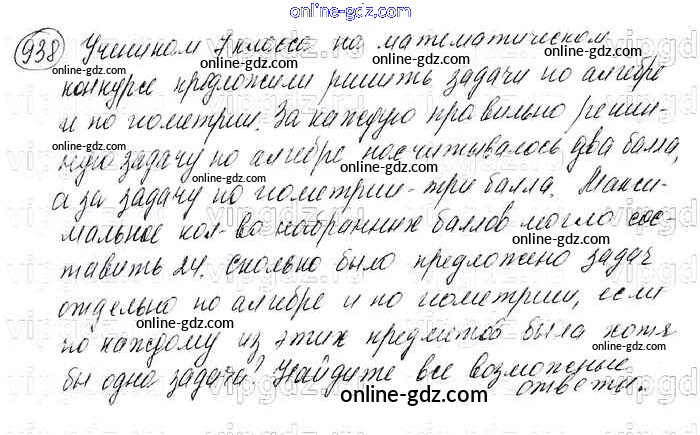 online-gdz.com
938 Ученикам 7 класса на математическом
конкурсе предложили решить задачи по алгебре
и по геометрии. За каждую правильно решен-
ную задачу по алгебре насчитывалось два балла,
а за задачу по геометрии - три балла. Макси-
мальное кол-во набранных баллов могло сос-
тавить 24. Сколько было предложено задач
отдельно по алгебре и по геометрии, если
по каждому из этих предметов была хотя
бы одна задача? Найдите все возможные
ответы.
online-gdz.com